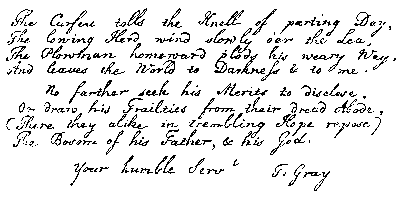 The Curfeu tolls the Knell of parting Day,
The lowing Herd wind slowly o'er the Lea,
The Plowman homeward plods his weary Way,
And leaves the World to Darkness & to me.
No farther seek his Merits to disclose,
Or draw his Frailties from their dread Abode,
(There they alike in trembling Hope repose)
The Bosom of his Father, & his God.
Your humble Servt T. Gray